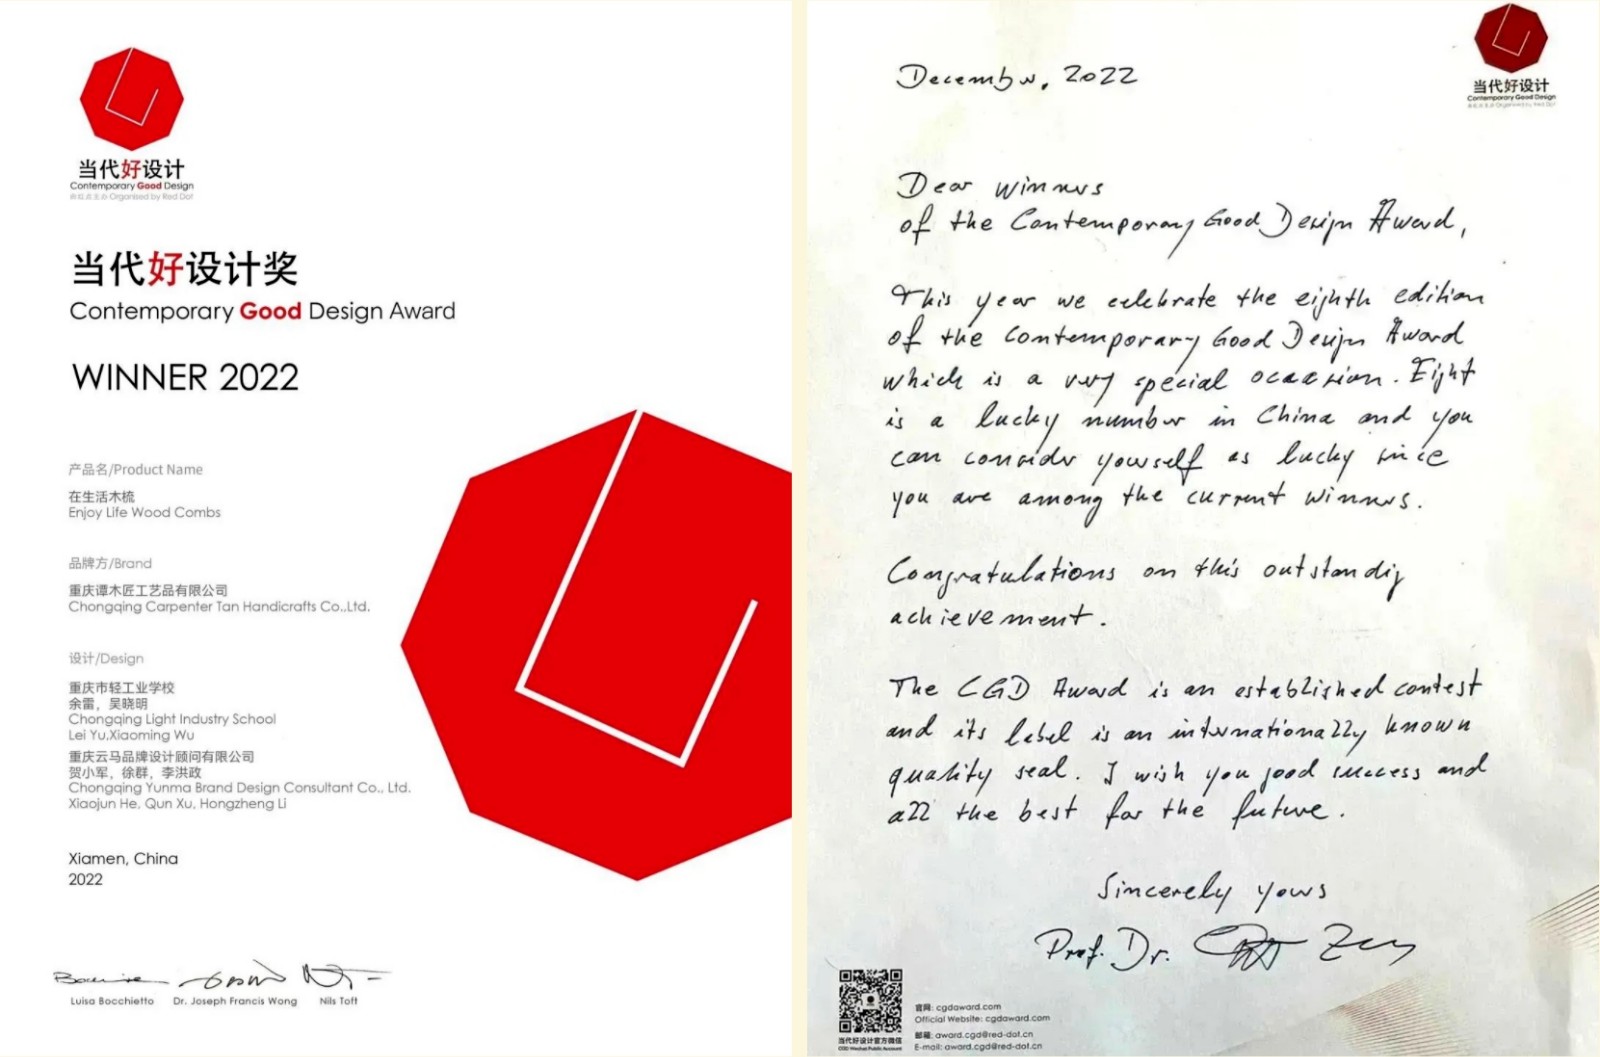 当代好设计
Contemporary Good Design
Organised by Red Dot
当代好设计奖
Contemporary Good Design Award
WINNER 2022
产品名/Product Name
在生活木梳
Enjoy Life Wood Combs
品牌方/Brand
重庆谭木匠工艺品有限公司
Chongqing Carpenter Tan Handicrafts Co.,Ltd.
设计/Design
重庆市轻工业学校
余雷，吴晓明
Chongqing Light Industry School
Lei Yu,Xiaoming Wu
重庆云马品牌设计顾问有限公司
贺小军，徐群，李洪政
Chongqing Yunma Brand Design Consultant Co., Ltd.
Xiaojun He, Qun Xu, Hongzheng Li
Xiamen, China
2022
Luisa Bocchietto Dr. Joseph Francis Wong Nils Toft
当代好设计
Contemporary Good Design
Organised by Red Dot
December, 2022
Dear winners
of the Contemporary Good Design Award,
This year we celebrate the eighth edition
of the Contemporary Good Design Award
which is a very special occasion. Eight
is a lucky number in China and you
can consider yourself as lucky since
you are among the current winners.
Congratulations on this outstandig
achievement.
The CGD Award is an established contest
and its label is an internationally known
quality seal. I wish you good success and
all the best for the future.
Sincerely yours
Prof. Dr.
当代好设计官方微信
CGD Wechat Public Account
官网: cgdaward.com
Official Website: cgdaward.com
邮箱: award.cgd@red-dot.cn
E-mail: award.cgd@red-dot.cn